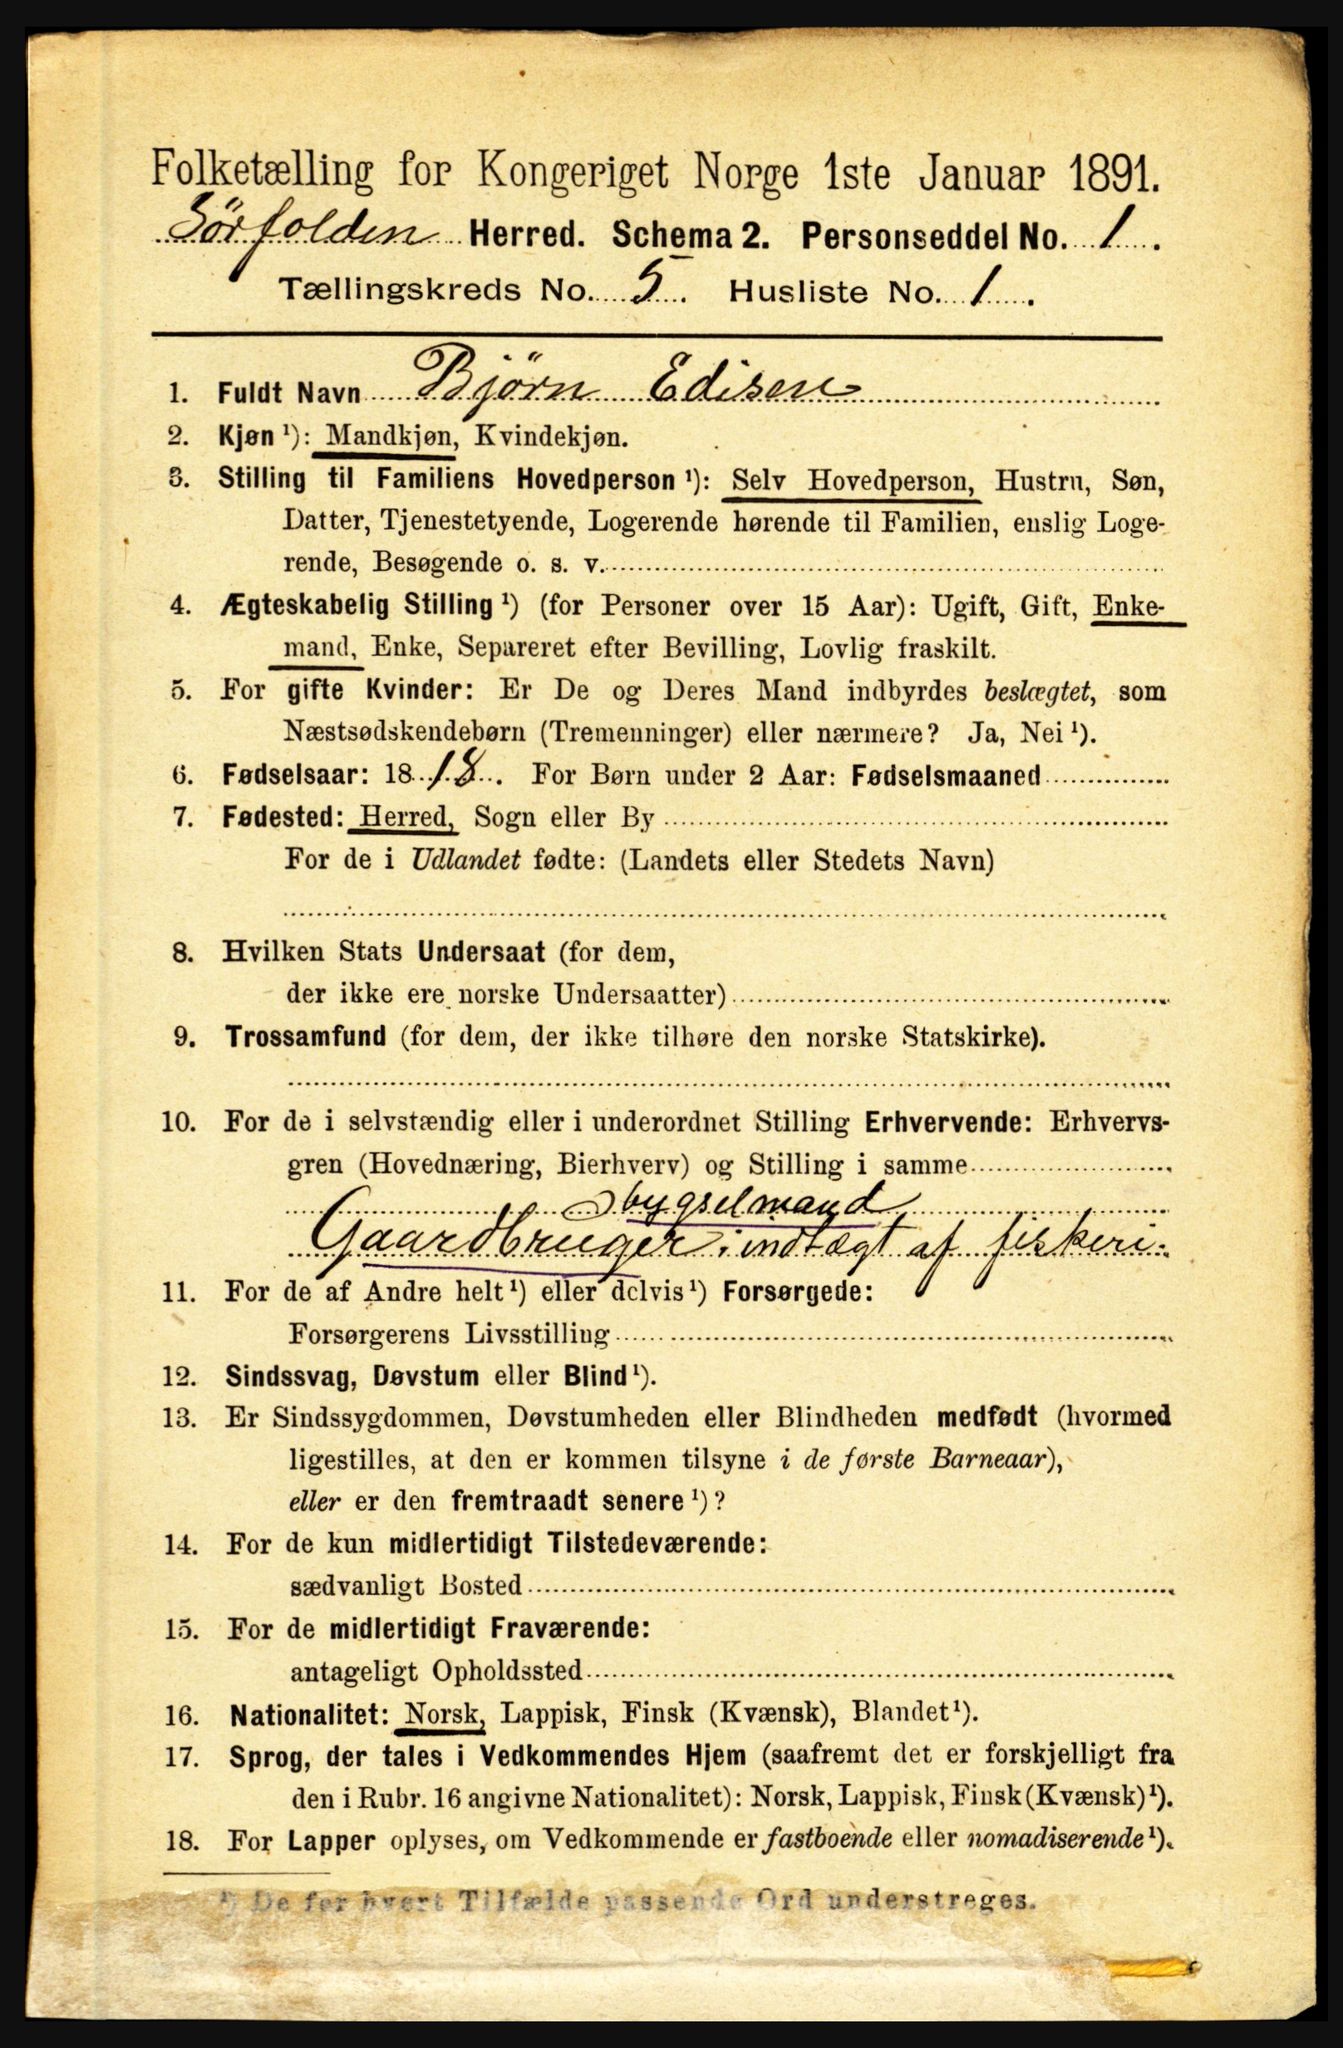 Folketælling for Kongeriget Norge 1ste Januar 1891.
Sörfolden Herred. Schema 2. Personseddel No. 1.
Tællingskreds No. 5. Husliste No. 1.
1. Fuldt Navn Björn Edisen
2. Kjøn ¹): Mandkjøn, Kvindekjøn.
3. Stilling til Familiens Hovedperson ¹): Selv Hovedperson, Hustru, Søn,
Datter, Tjenestetyende, Logerende hørende til Familien, enslig Loge-
rende, Besøgende o. s. v.
4. Ægteskabelig Stilling ¹) (for Personer over 15 Aar): Ugift, Gift, Enke-
mand, Enke, Separeret efter Bevilling, Lovlig fraskilt.
5. For gifte Kvinder: Er De og Deres Mand indbyrdes beslægtet, som
Næstsødskendebørn (Tremenninger) eller nærmere? Ja, Nei ¹).
6. Fødselsaar: 1818. For Børn under 2 Aar: Fødselsmaaned
7. Fødested: Herred, Sogn eller By
For de i Udlandet fødte: (Landets eller Stedets Navn)
8. Hvilken Stats Undersaat (for dem,
der ikke ere norske Undersaatter)
9. Trossamfund (for dem, der ikke tilhøre den norske Statskirke).
10. For de i selvstændig eller i underordnet Stilling Erhvervende: Erhvervs-
gren (Hovednæring, Bierhverv) og Stilling i samme
bygselmand
Gaardbruger; indtægt af fiskeri.
11. For de af Andre helt ¹) eller delvis ¹) Forsørgede:
Forsørgerens Livsstilling
12. Sindssvag, Døvstum eller Blind ¹).
13. Er Sindssygdommen, Døvstumheden eller Blindheden medfødt (hvormed
ligestilles, at den er kommen tilsyne i de første Barneaar),
eller er den fremtraadt senere ¹)?
14. For de kun midlertidigt Tilstedeværende:
sædvanligt Bosted
15. For de midlertidigt Fraværende:
antageligt Opholdssted
16. Nationalitet: Norsk, Lappisk, Finsk (Kvænsk), Blandet ¹).
17. Sprog, der tales i Vedkommendes Hjem (saafremt det er forskjelligt fra
den i Rubr. 16 angivne Nationalitet): Norsk, Lappisk, Finsk (Kvænsk) ¹).
18. For Lapper oplyses, om Vedkommende er fastboende eller nomadiserende ¹).
¹) De for hvert Tilfælde passende Ord understreges.